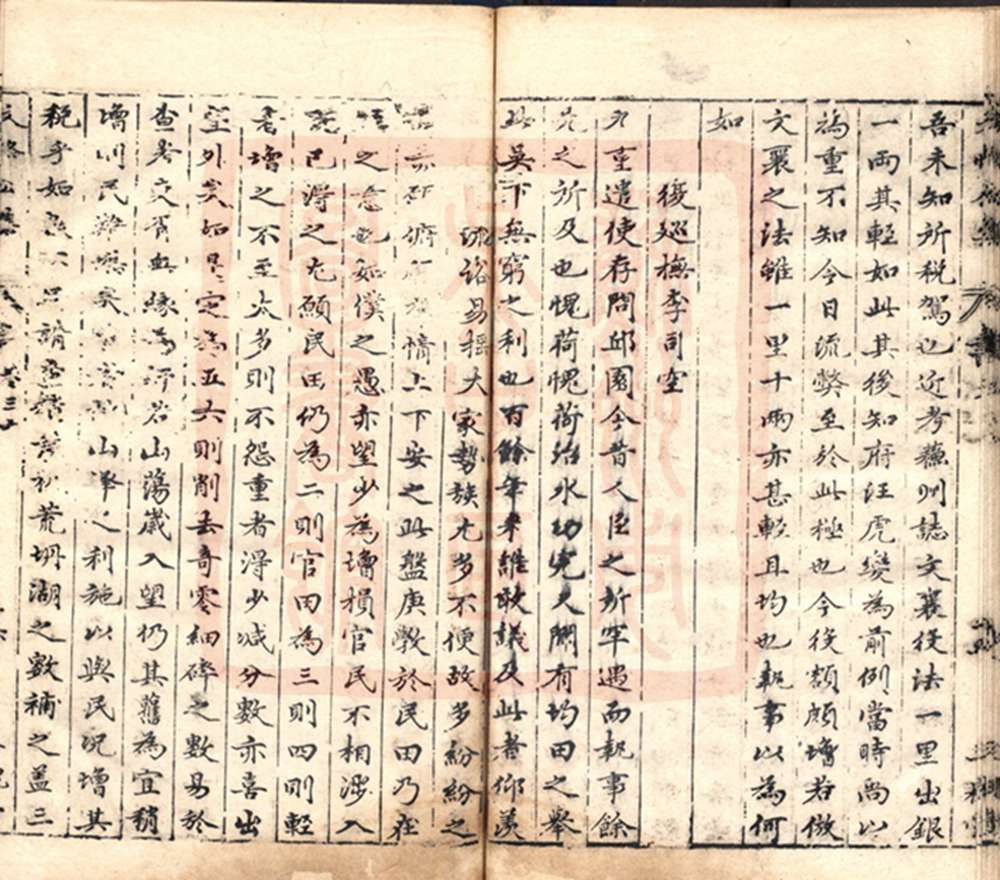 吾未知所稅駕也近考蘇州誌文襄役法一里出銀
一兩其輕如此其後知府汪虎變為前例當時尚以
為重不知今日流弊至於此極也今後額頗增若倣
文襄之法雖一里十兩亦甚輕且均也執事以為何
如
復巡撫李司空
九重遣使存問邱園今昔人臣之所罕遇而執事餘
光之所及也愧荷愧荷治水功完又聞有均田之舉
此吳下無窮之利也百餘年來誰敢議及此者仰羨
流俗易搖大家勢族尤多不便故多紛紛之
情上下安之此盤庚斆於民田乃在
之意也如僕之愚亦望少為增損官民不相涉入
已得之尤願民田仍為二則官田為三則四則輕
者增之不至太多則不怨重者得少減分數亦喜出
望外矣如已定為五六則削去奇零細碎之數易於
查考交有血緣為奸若山蕩歲入望仍其舊為宜稍
增則民難應矣山澤之利施以與民況增其
稅乎如荒坍湖之數補之蓋三